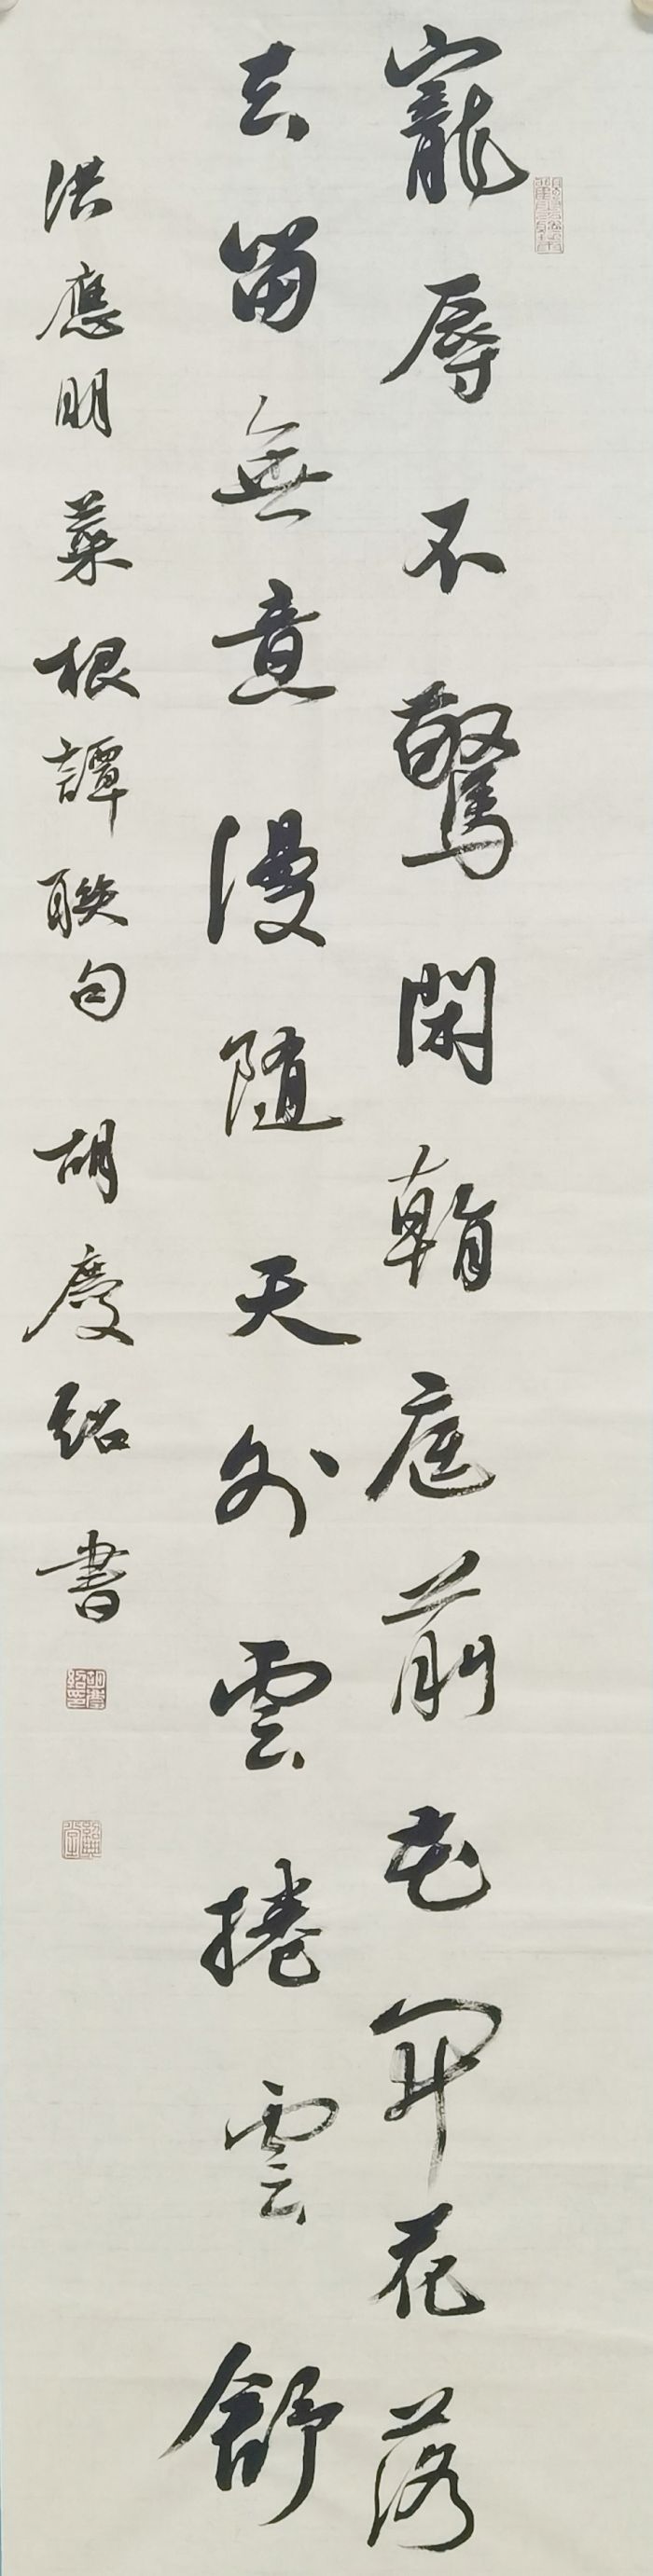 寵辱不驚閑看庭前花開花落
去留無意漫随天外雲捲雲舒
洪應明菜根譚聯句 胡慶紹書